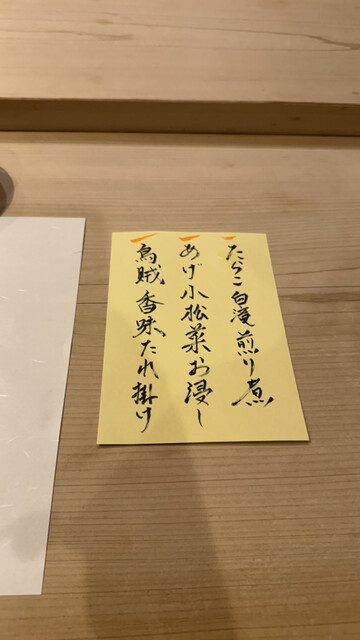 たらこ白滝煎り煮
あげ小松菜お浸し
烏賊香味たれ掛け